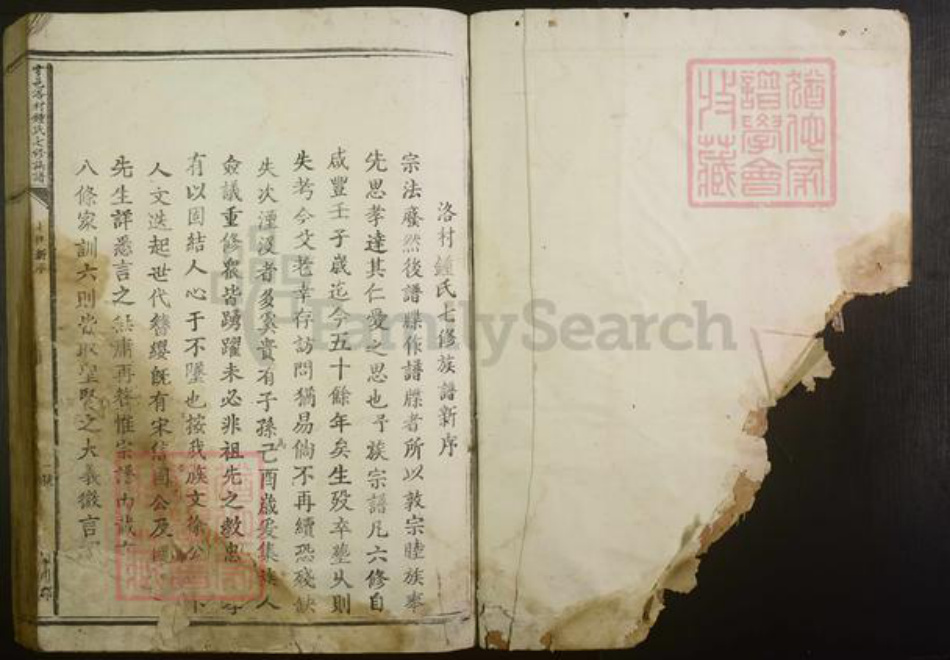 洛村鍾氏七修族譜新序
宗法廢然後譜牒作譜牒者所以敦宗睦族奉
先思孝達其仁愛之思也予族宗譜凡六修自
咸豐壬子歲迄今五十餘年矣生殁卒塟从則
失考今父老幸存訪問猶易倘不再續恐殘缺
失次湮沒者多奚貴有子孫己酉歲爰集族人
僉議重修眾皆踴躍未必非祖先之教忠
有以固結人心于不墜也按我族文徐公
人文迭起世代簪纓旣有宋信國公及
先生詳悉言之無庸再替惟宗譜內載
八條家訓六則嘗取聖賢之大義微言
洛村鍾氏七修族譜
新序
猶他家
譜學會
收藏
FamilySearch